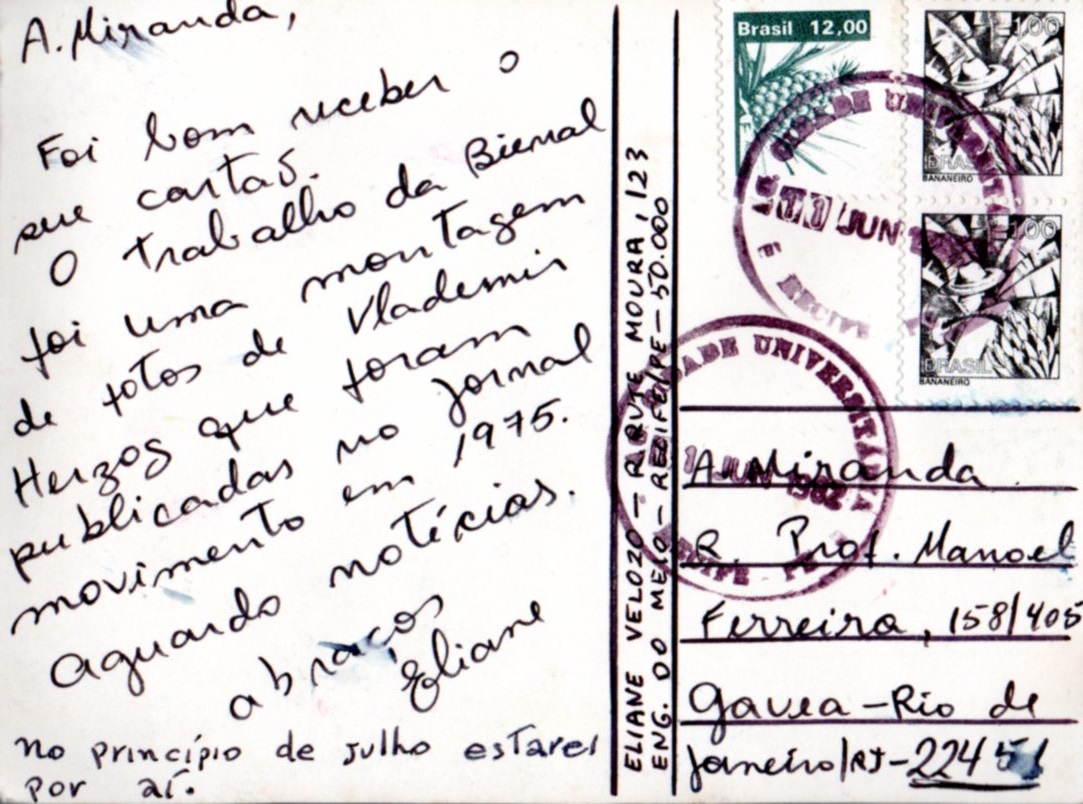 A. Miranda,
Foi bom receber o
seu cartão.
O trabalho da Bienal
foi uma montagem
de fotos de Vlademir
Herzog que foram
publicadas no jornal
movimento em 1975.
Aguardo notícias.
abraços
Eliane
No princípio de julho estarei
por aí.
ELIANE VELOZO — R. RUTE MOURA, 123
ENG. DO MEIO — RECIFE/PE — 50.000
Brasil 12,00
100
BRASIL
BANANEIRO
100
BRASIL
BANANEIRO
CIDADE UNIVERSITÁRIA
11 JUN
RECIFE
CIDADE UNIVERSITÁRIA
11 JUN 1982
RECIFE - PE
A. Miranda
R. Prof. Manoel
Ferreira, 158/405
Gavea - Rio de
Janeiro/RJ - 22451